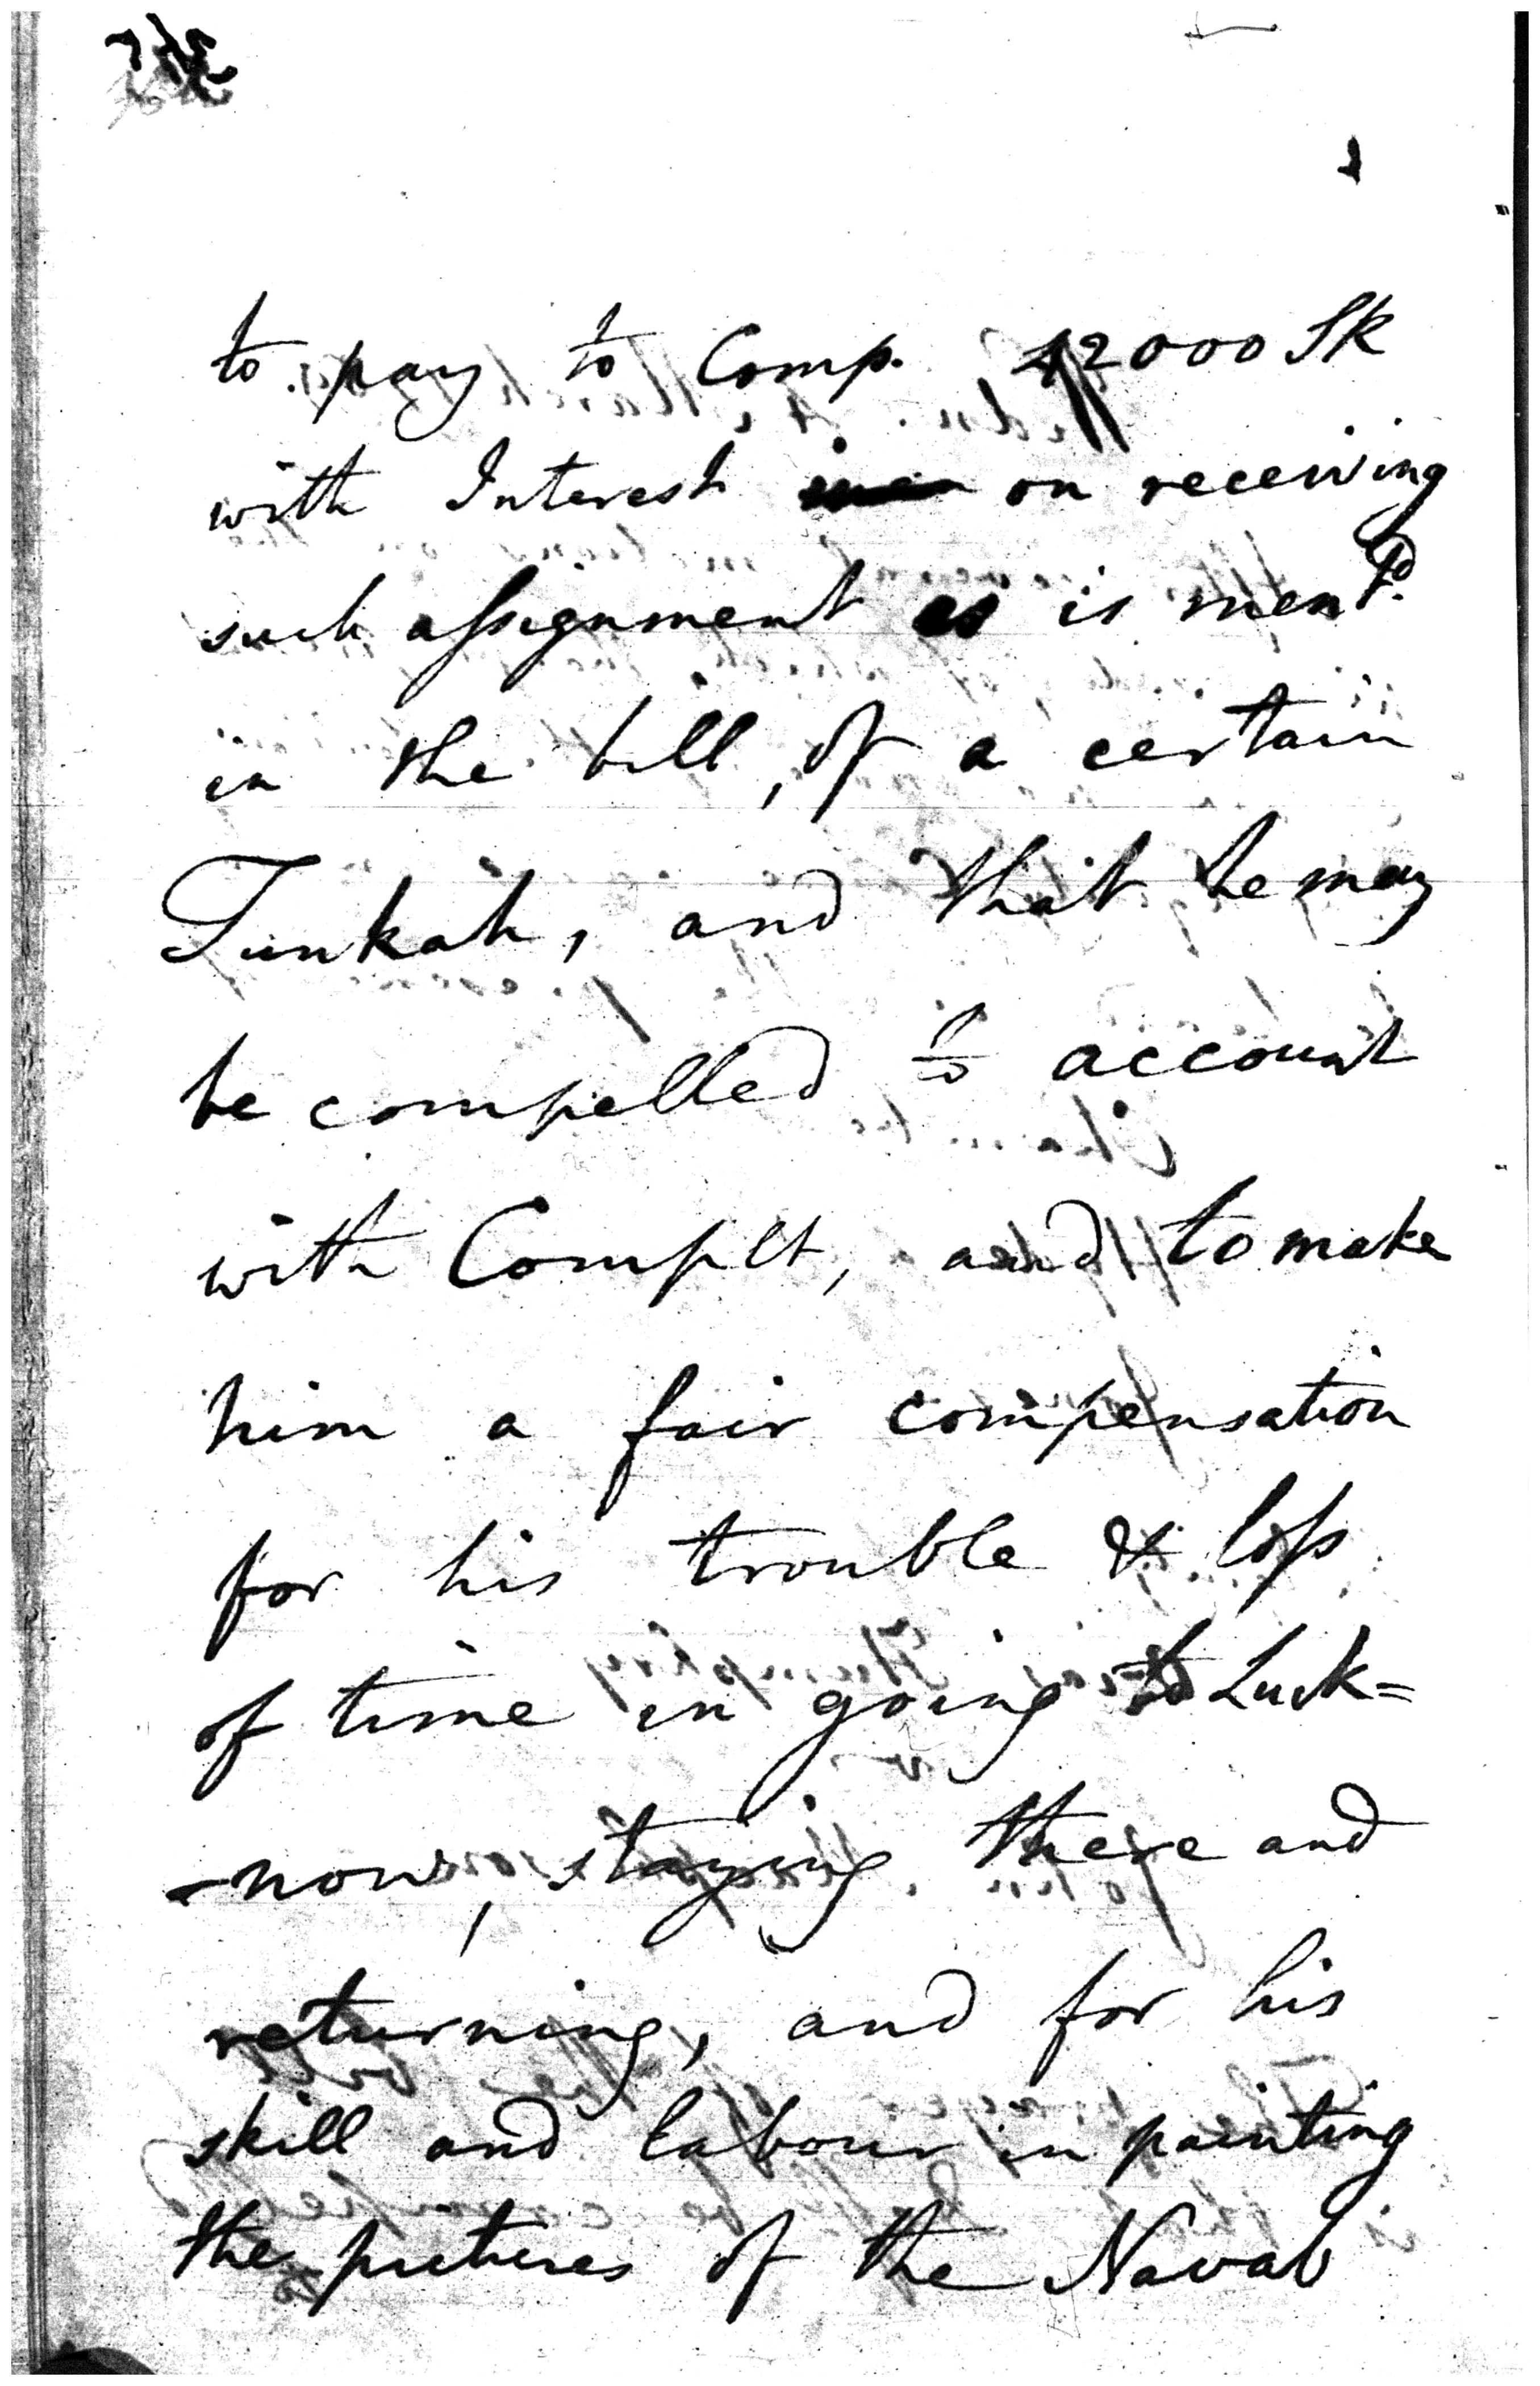 to pay to Comp. 42000 Sk
with Interest on receiving
such assignment as is ment.d
in the bill, of a certain
Tunkah, and that he may
be compelled to account
with Complt, and to make
him a fair compensation
for his trouble & loss
of time in going to Luck=
-now, staying there and
returning, and for his
skill and labour in painting
the pictures of the Navab